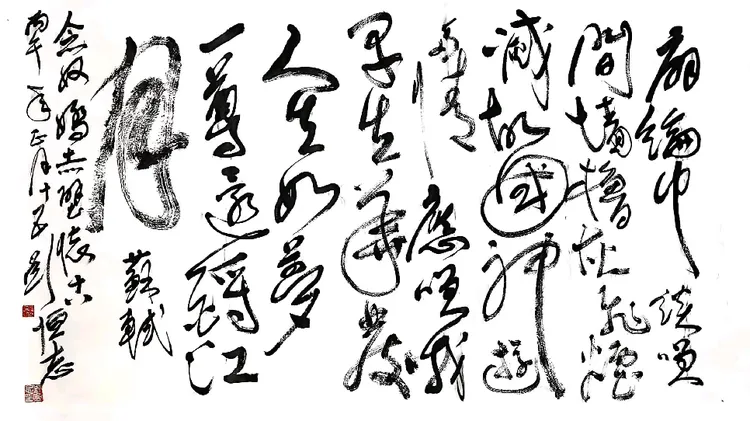 扇綸巾談咲
間墻櫓灰飛煙
滅故國神遊
多情應咲我
早生華髮
人生如夢
一尊還酹江
月 蘇軾
念奴嬌赤壁懷古 恒志
丙午年正月十五 劉